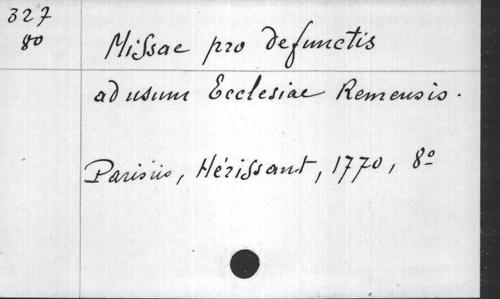 327
80
Missae pro defunctis
ad usum Ecclesiae Remensis.
Parisiis, Hérissant, 1770, 8º